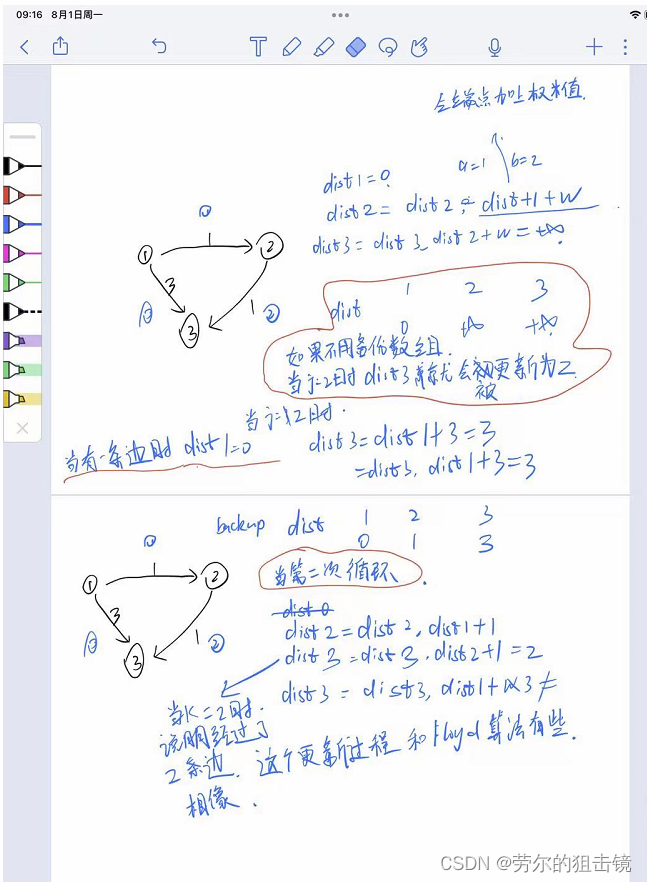 09:16 8月1日周一
T
a=1 b=2
dist1=0
dist2= dist2, dist1+1+w
dist3=dist3, dist2+w=+∞
① 1 ②
3 1 ②
③
dist 1 2 3
0 +∞ +∞
如果不用备份数组.
dist3 就会 被更新为2
dist3=dist1+3=3
当有一条边时 dist1=0
=dist3, dist1+3=3
backup dist 1 2 3
0 1 3
① 1 ②
3 1 ②
③
当第二次循环.
dist 0
dist2=dist2, dist1+1
dist3=dist3, dist2+1=2
dist3 = dist3, dist1+3
当K=2时.
说明经过了
2条边. 这个更新过程和Floyd算法有些
相像.
CSDN @劳尔的狙击镜